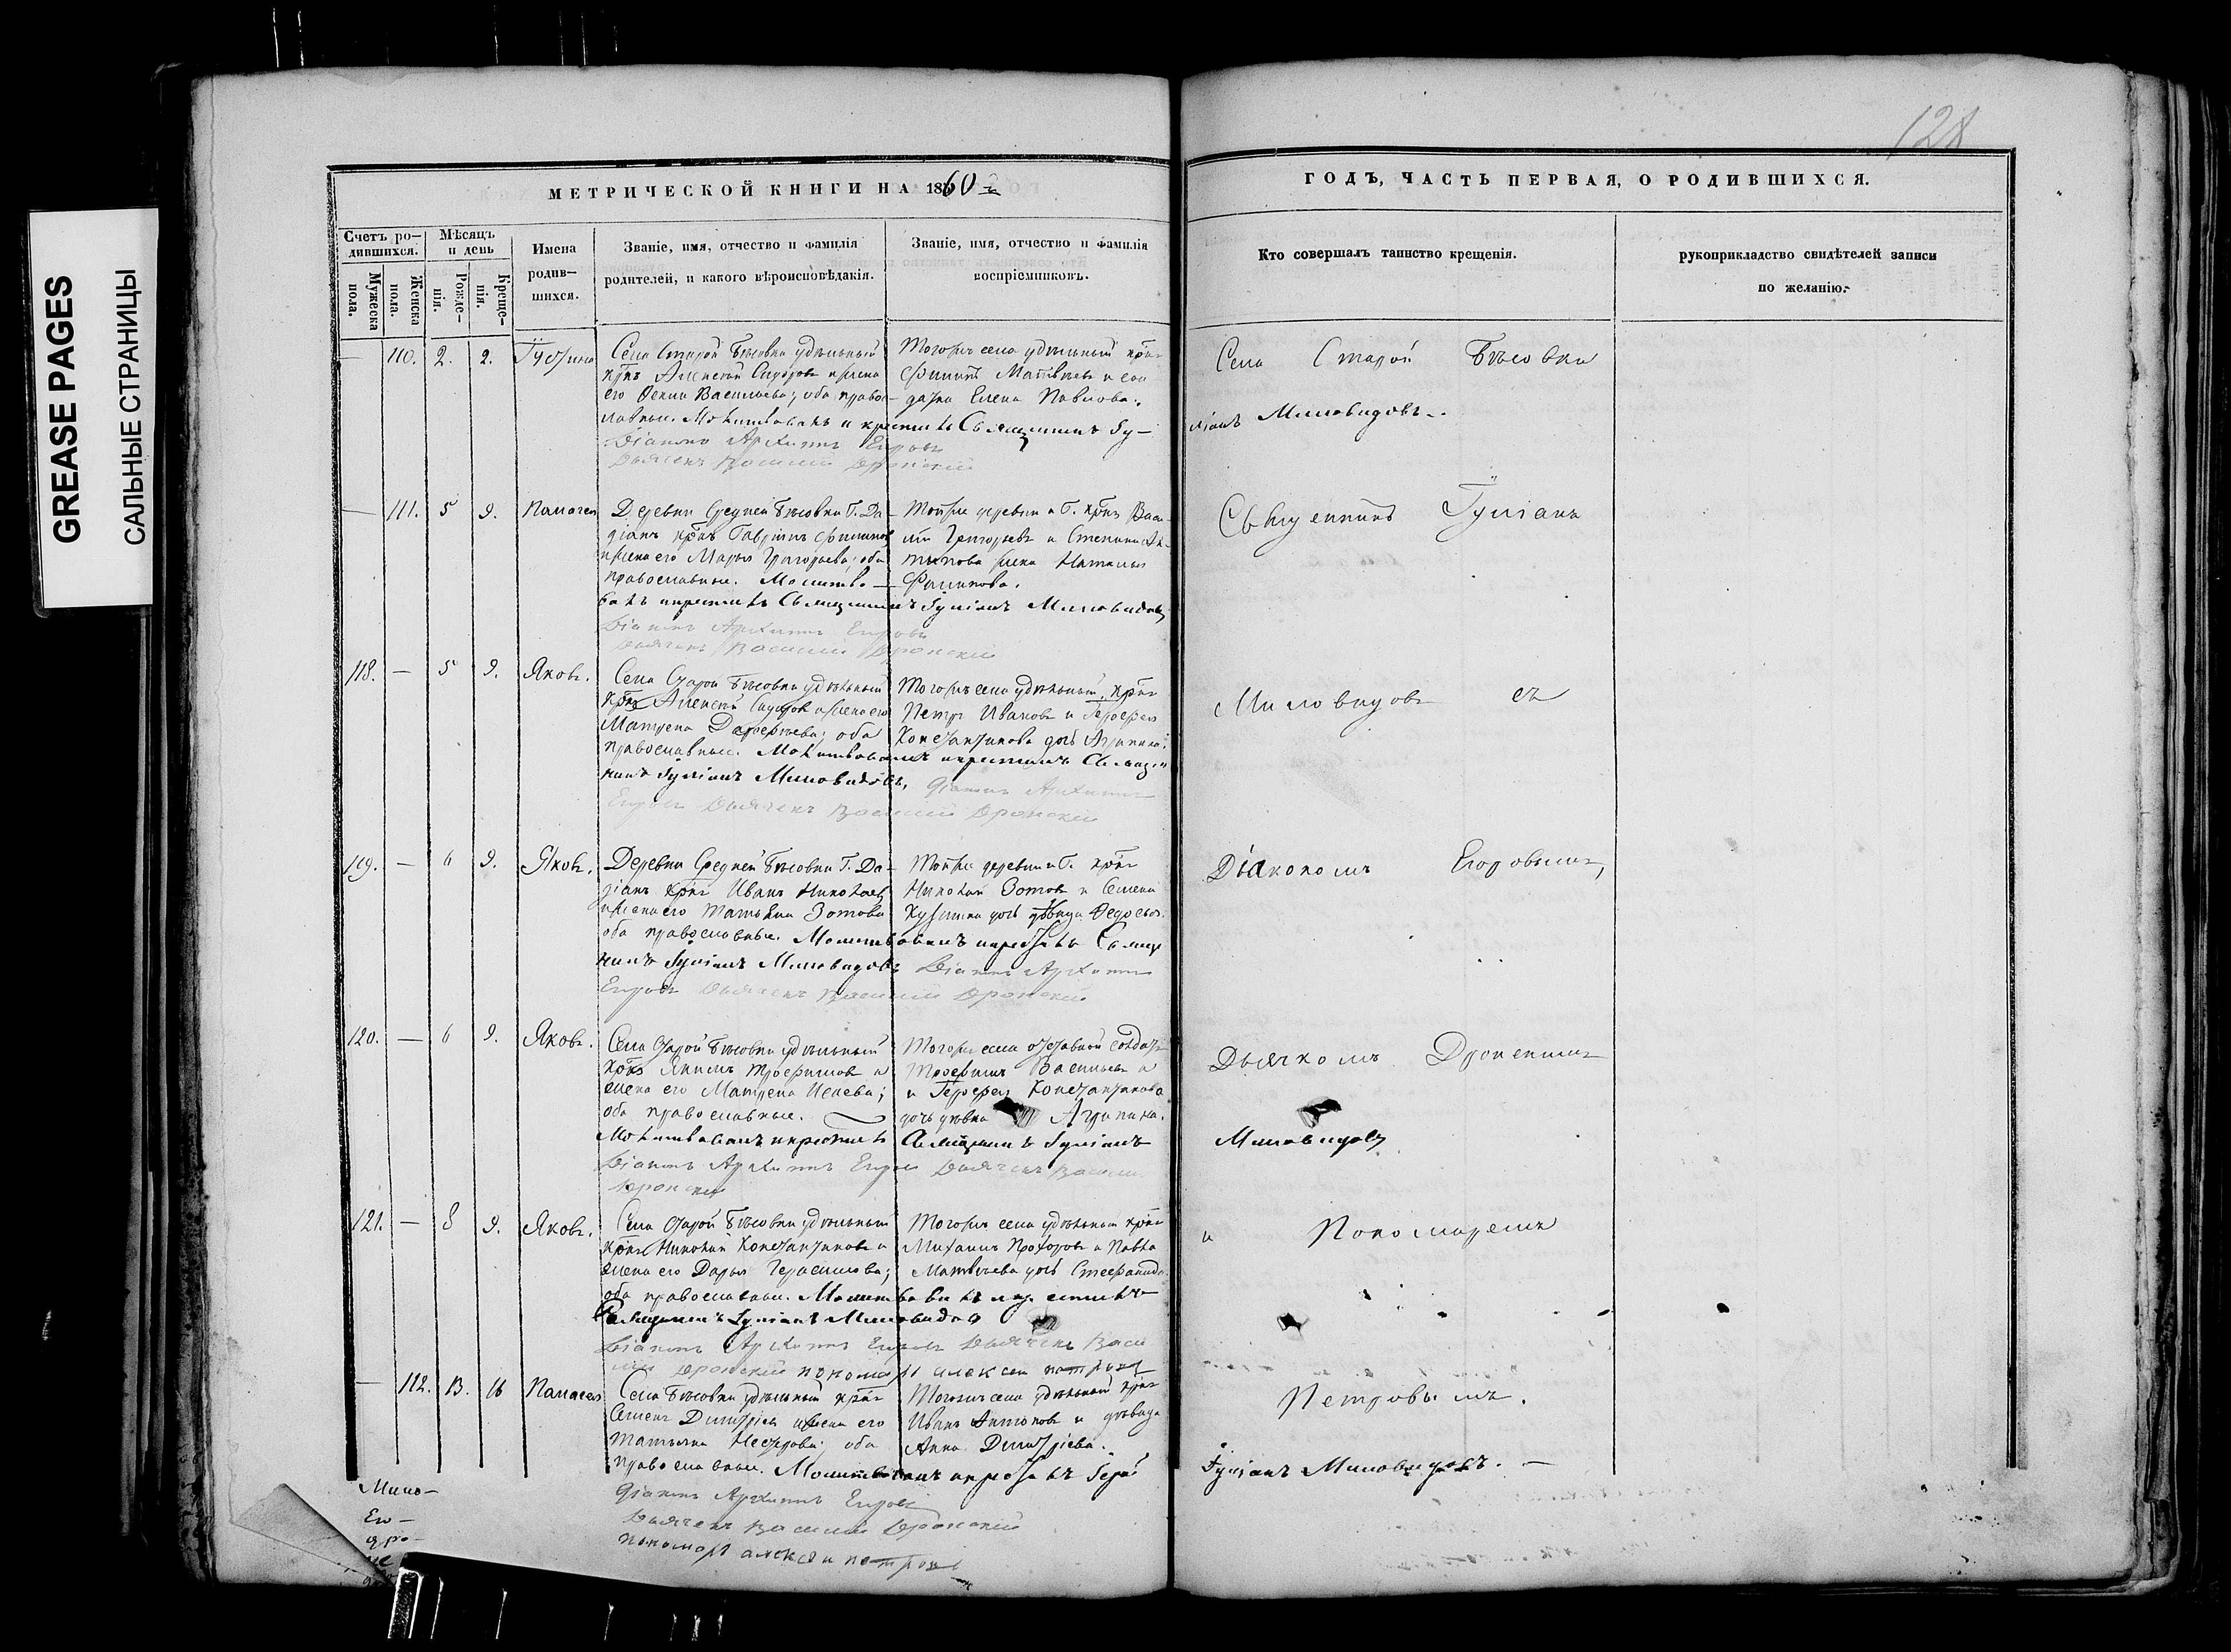 GREASE PAGES
САЛЬНЫЕ СТРАНИЦЫ
128
МЕТРИЧЕСКОЙ КНИГИ НА 1860
ГОДЪ, ЧАСТЬ ПЕРВАЯ, О РОДИВШИХСЯ.
Счетъ ро-
дившихся.
Мужеска
пола.
Женска
пола.
Мѣсяцъ
и день
Рожде-
нія.
Креще-
нія.
Имена
родив-
шихся.
Званіе, имя, отчество и фамилія
родителей, и какого вѣроисповѣданія.
Званіе, имя, отчество и фамилія
воспріемниковъ.
Кто совершалъ таинство крещенія.
рукоприкладство свидѣтелей записи
по желанію.
— 110. 2. 2. Іустина
Села Старой Бѣсовки удѣльный
крнъ Алексей Сидоровъ и жена
его Васильева; оба право-
славные. Молитвовалъ и крестилъ Священникъ Іу-
Діаконъ Архиппъ Егоровъ
Дьячекъ Василий Дронский
Тогожъ села удѣльный крнъ
Филиппъ Матвѣевъ и сол
датка Елена Павлова.
Села Старой Бѣсовки
ліанъ Миловидовъ.
— 111. 5 9. Пелагея
Деревни Средней Бѣсовки Г. Да-
діанъ крнъ Гаврилъ Филиповъ
и жена его Марья Григорьева; оба
православные. Молитво-
валъ и крестилъ Священникъ Іуліанъ Миловидовъ
Діаконъ Архиппъ Егоровъ
Дьячекъ Василий Дронский
Тойже деревни и Г. крнъ Васи-
лій Григорьевъ и Степана Ан-
типова жена Наталья
Филипова.
Священникъ Іуліанъ
118. — 5 9. Яковъ.
Села Старой Бѣсовки удѣльный
крнъ Алексей Сидоровъ и жена его
Матрена Дорофеева; оба
православные. Молитвовалъ и крестилъ Священ
никъ Іуліанъ Миловидовъ, Діаконъ Архиппъ
Егоровъ Дьячекъ Василий Дронский
Тогожъ села удѣльный крнъ
Петръ Ивановъ и Герофея
Константинова дочь Агрипина.
Миловидовъ съ
119. — 6 9. Яковъ.
Деревни Средней Бѣсовки Г. Да-
діанъ крнъ Иванъ Николаевъ
и жена его Татьяна Зотова
оба православные. Молитвовалъ и крестилъ Священ
никъ Іуліанъ Миловидовъ Діаконъ Архиппъ
Егоровъ Дьячекъ Василий Дронский
Тойже деревни и Г. крнъ
Николай Зотовъ и Семена
Кузмина дочь дѣвица Федосья.
Діакономъ Егоровымъ,
120. — 6 9. Яковъ.
Села Старой Бѣсовки удѣльный
крнъ Якимъ Трофимовъ и
жена его Матрена Исаева;
оба православные.
Молитвовалъ и крестилъ Священникъ Іуліанъ
Діаконъ Архиппъ Егоровъ Дьячекъ Василий
Дронский
Тогожъ села отставной солдатъ
Трофимъ Васильевъ и
и Герофея Константинова
дочь дѣвка Агрипина.
Дьячкомъ Дронскимъ
Миловидовъ
121. — 8 9. Яковъ.
Села Старой Бѣсовки удѣльный
крнъ Николай Константиновъ и
жена его Дарья Герасимова;
оба православные. Молитвовалъ и крестилъ
Священникъ Іуліанъ Миловидовъ
Діаконъ Архиппъ Егоровъ Дьячекъ Васи
лий Дронский пономарь алексеи петровъ
Тогожъ села удѣльный крнъ
Михаилъ Прохоровъ и Павла
Матвѣева дочь Стефанида.
и Пономаремъ
— 112. 13. 16 Пелагея
Села Бѣсовки удѣльный крнъ
Семенъ Дмитріевъ и жена его
Татьяна Нестерова; оба
православные. Молитвовалъ и крестилъ Іерей
Діаконъ Архиппъ Егоровъ
Дьячекъ Василий Дронский
пономарь алексеи петровъ
Тогожъ села удѣльный крнъ
Иванъ Антоновъ и дѣвица
Анна Дмитріева.
Петровымъ.
Іуліанъ Миловидовъ.
Мило-
Его-
дро-